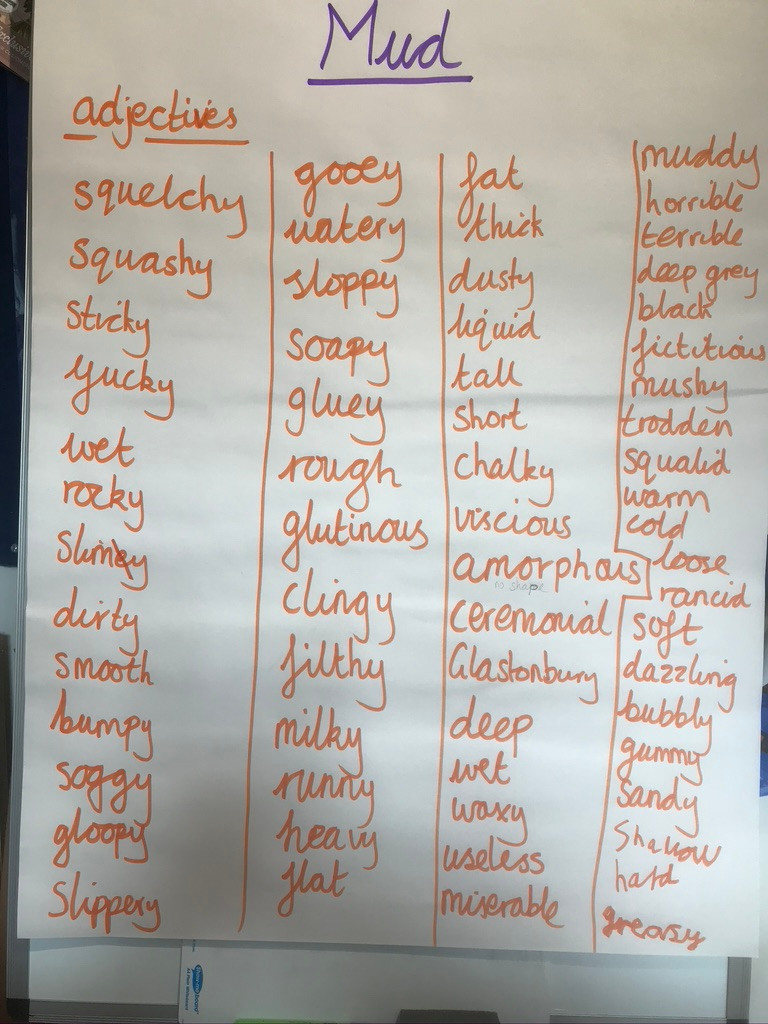 Mud
adjectives
squelchy
squashy
sticky
yucky
wet
rocky
Slimey
dirty
smooth
bumpy
soggy
gloopy
Slippery
gooey
watery
sloppy
soapy
gluey
rough
glutinous
clingy
filthy
milky
runny
heavy
flat
fat
thick
dusty
liquid
tall
short
chalky
viscious
amorphous
no shape
ceremonial
Glastonbury
deep
wet
waxy
useless
miserable
muddy
horrible
terrible
deep grey
black
fictitious
mushy
trodden
squalid
warm
cold
loose
rancid
soft
dazzling
bubbly
gummy
sandy
Shallow
hard
greasy